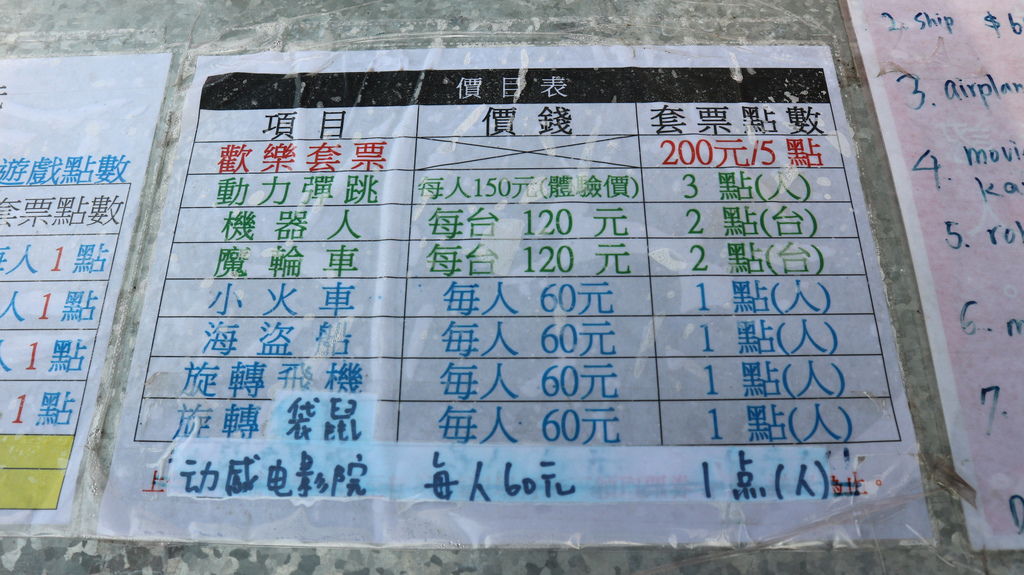 價目表
項目 價錢 套票點數
歡樂套票 200元/5 點
動力彈跳 每人150元(體驗價) 3 點(人)
機器人 每台 120 元 2 點(台)
魔輪車 每台 120 元 2 點(台)
小火車 每人 60元 1 點(人)
海盜船 每人 60元 1 點(人)
旋轉飛機 每人 60元 1 點(人)
旋轉袋鼠 每人 60元 1 點(人)
动感电影院 每人60元 1点(人)
上
遊戲點數
套票點數
每人 1 點
人 1 點
人 1 點
1 點
2. ship $6
3. airplan
4. movi
ka
5. rol
6. m
7.